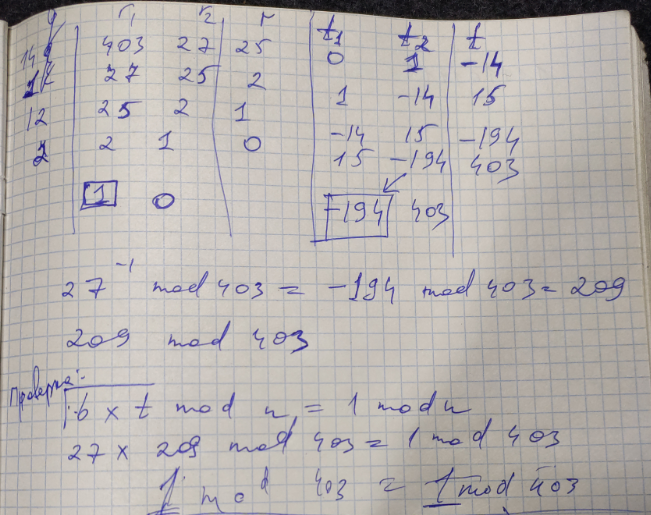 q r₁ r₂ r t₁ t₂ t
14 403 27 25 0 1 -14
1 27 25 2 1 -14 15
12 25 2 1 -14 15 -194
2 2 1 0 15 -194 403
1 0 -194 403
27⁻¹ mod 403 = -194 mod 403 = 209
209 mod 403
Проверка:
b × t mod n = 1 mod n
27 × 209 mod 403 = 1 mod 403
1 mod 403 = 1 mod 403